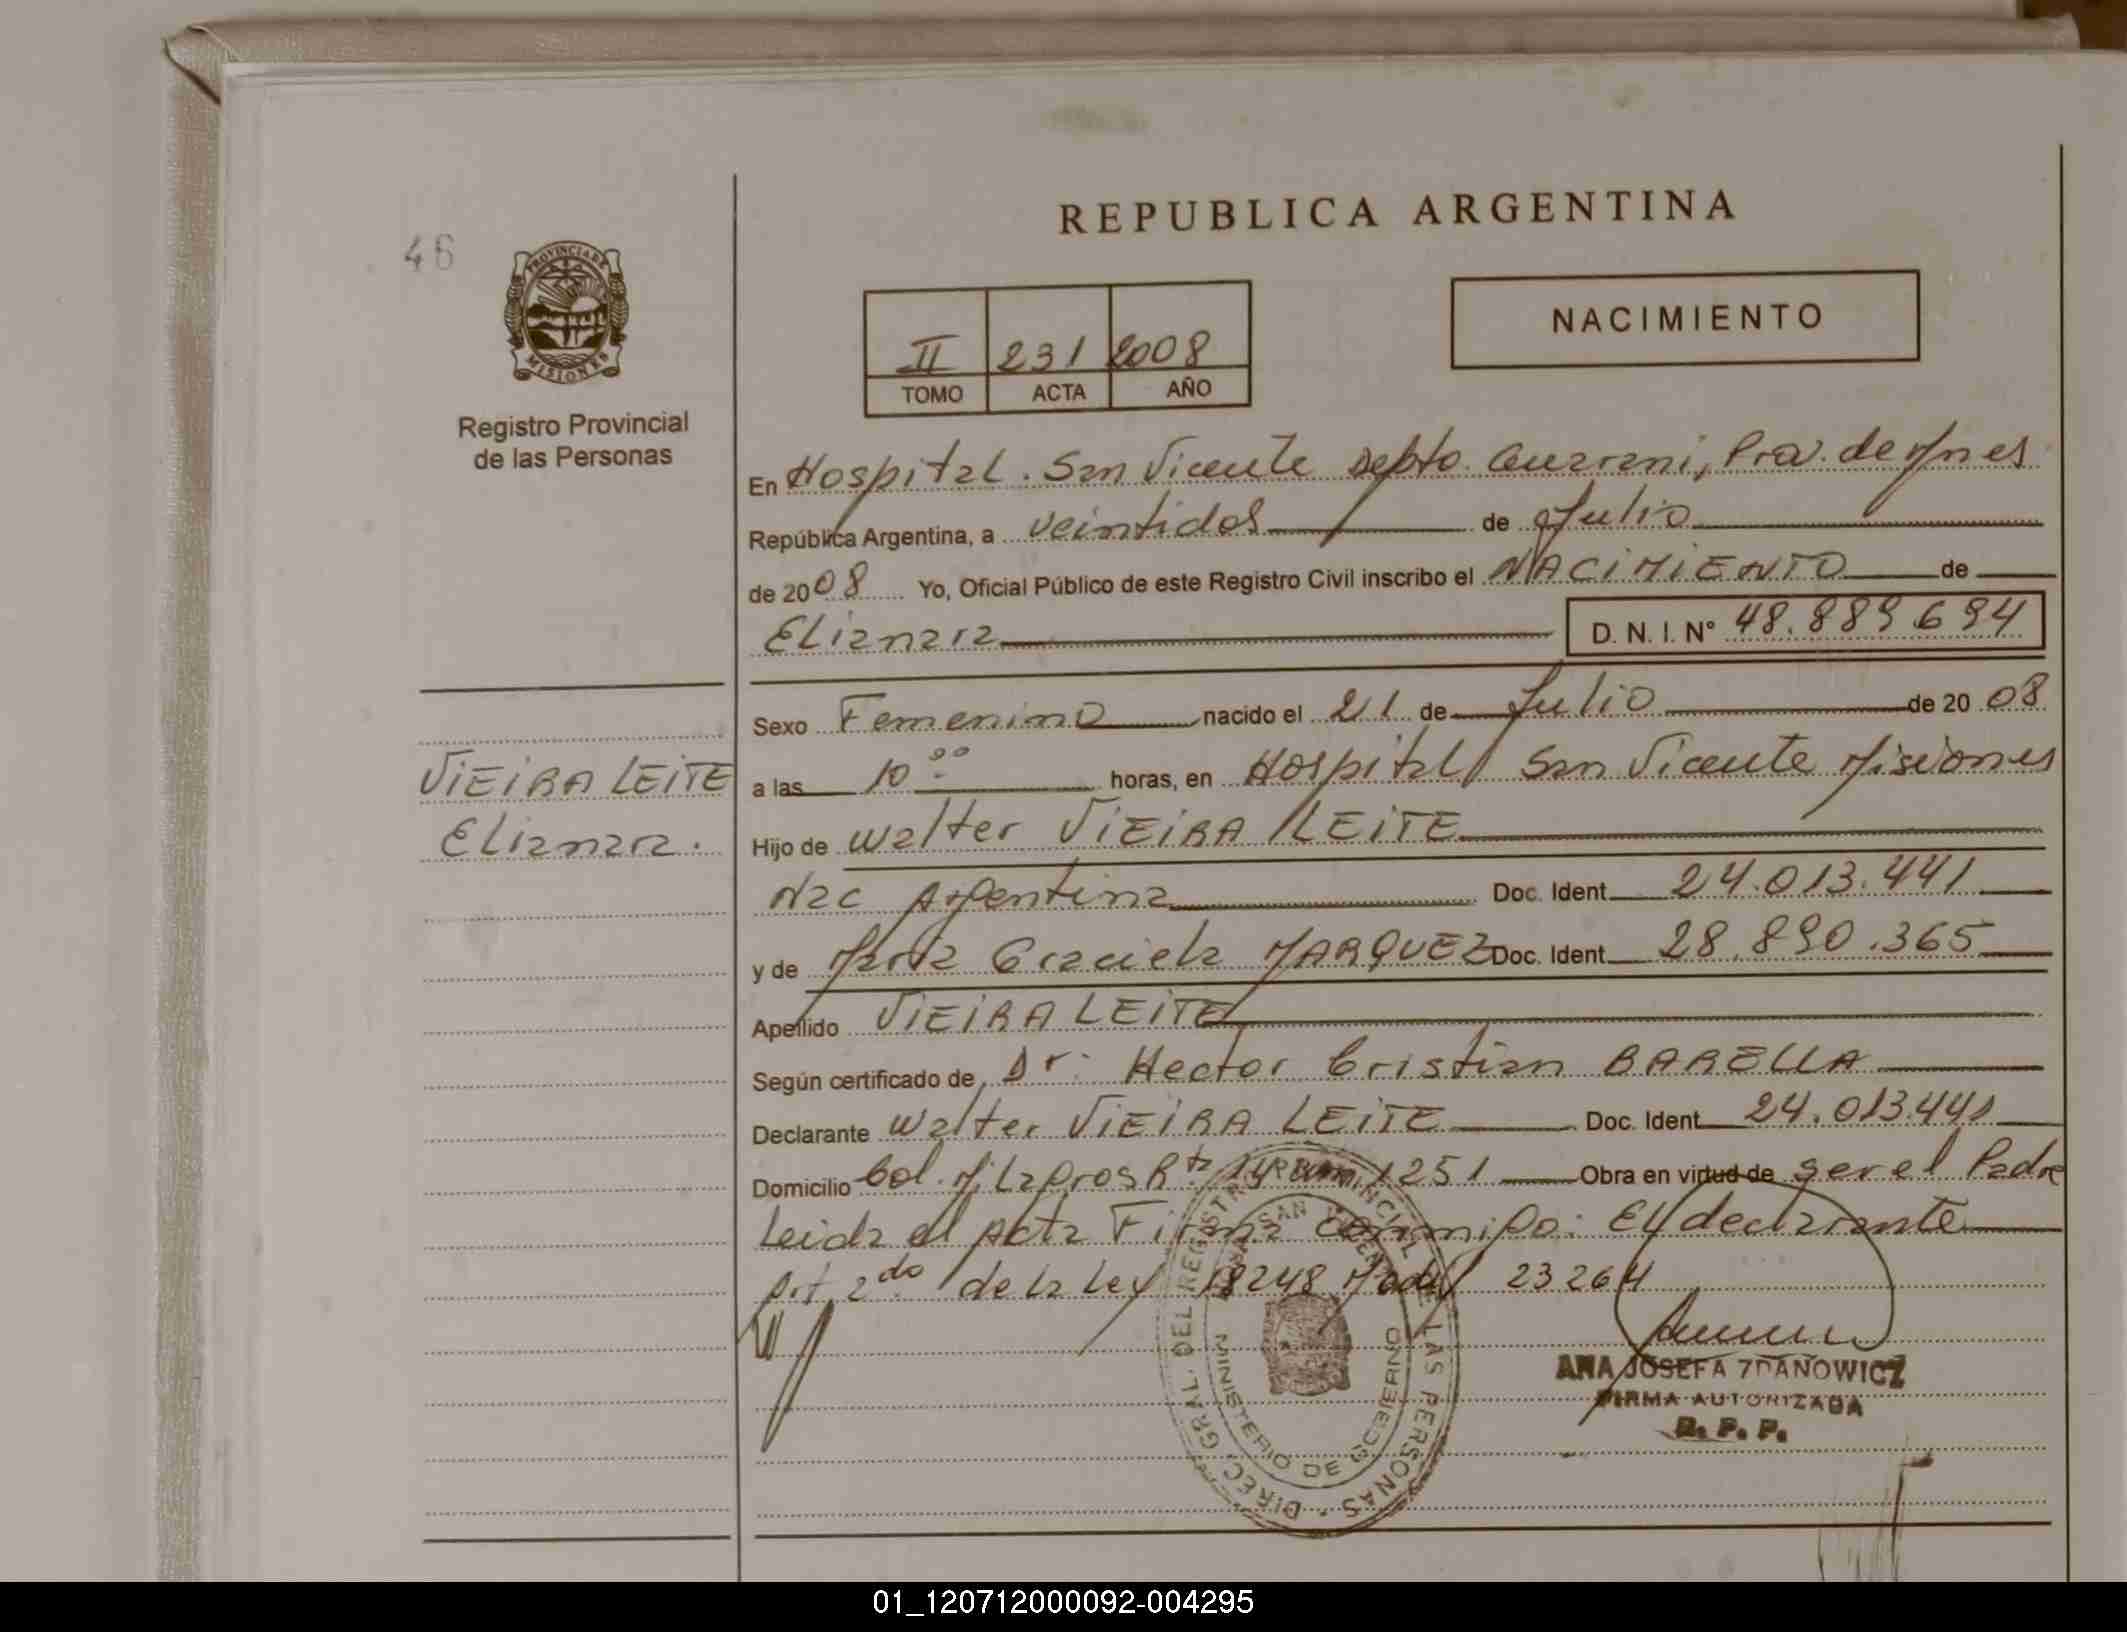 REPUBLICA ARGENTINA
46
PROVINCIA DE
MISIONES
Registro Provincial
de las Personas
II 231 2008
TOMO ACTA AÑO
NACIMIENTO
En Hospital. San Vicente Depto. Guarani, Prov. de Mnes
República Argentina, a veintidos de Julio
de 2008 Yo, Oficial Público de este Registro Civil inscribo el NACIMIENTO de
Elianara D. N. I. N° 48.889.694
Sexo Femenino nacido el 21 de Julio de 20 08
VIEIRA LEITE
Elianara.
a las 10 00 horas, en Hospital San Vicente Misiones
Hijo de Walter VIEIRA LEITE
Nac Argentina Doc. Ident 24.013.441
y de Maria Graciela MARQUEZ Doc. Ident 28.890.365
Apellido VIEIRA LEITE
Según certificado de Dr. Hector Cristian BARELLA
Declarante Walter VIEIRA LEITE Doc. Ident 24.013.441
Domicilio Col. Milagros Rta 14 km 1251 Obra en virtud de ser el Padre
Leida el Acta Firma conmigo: El declarante
Art 2do de la Ley 18248 23264
DIREC. GRAL. DEL REGISTRO PROVINCIAL DE LAS PERSONAS
SAN VICENTE
MINISTERIO DE GOBIERNO
ANA JOSEFA ZDANOWICZ
FIRMA AUTORIZADA
R. P. P.
01_120712000092-004295